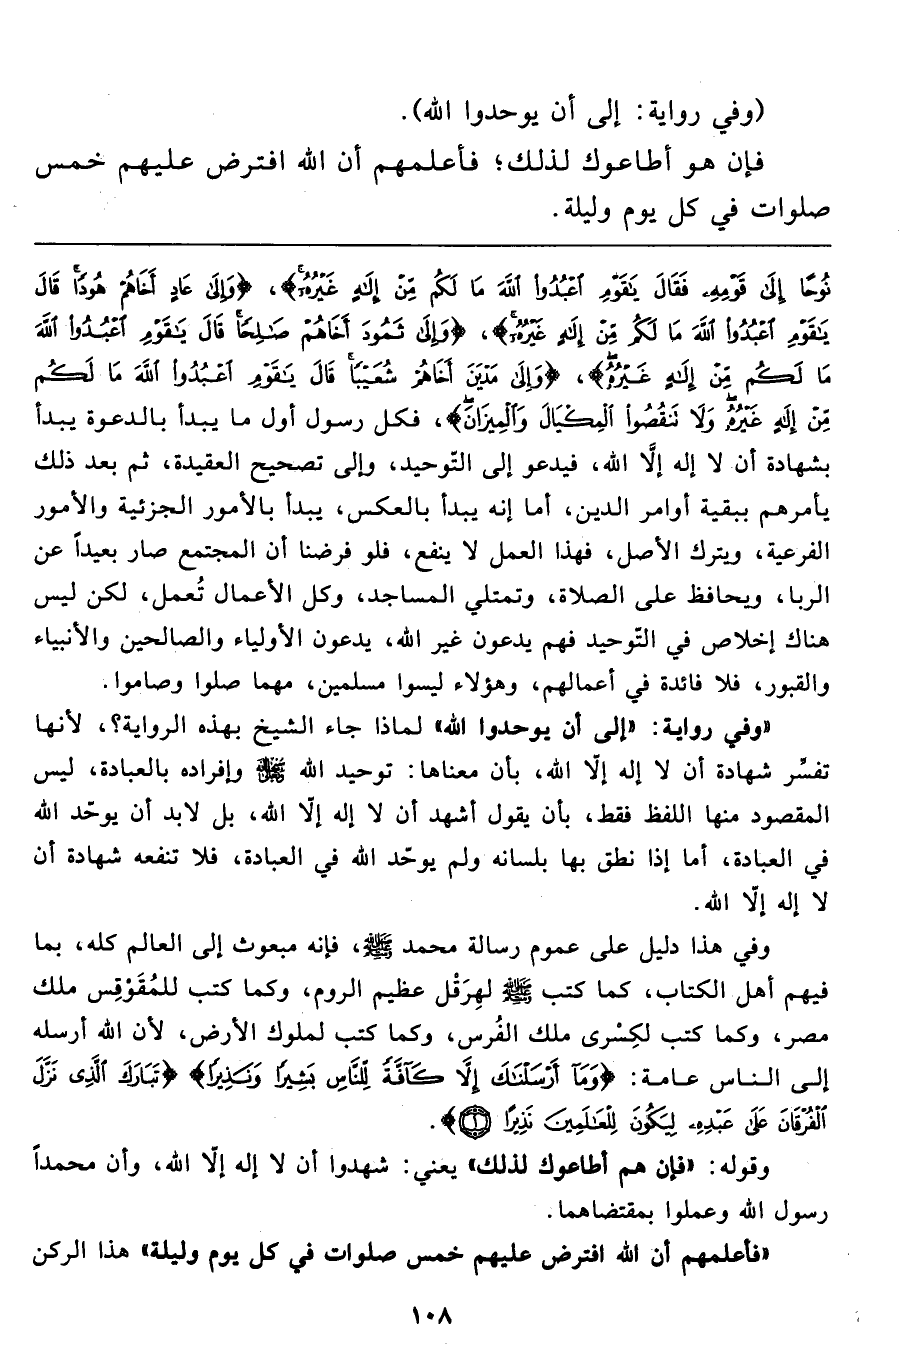 (وفي رواية: إلى أن يوحدوا الله).
فإن هو أطاعوك لذلك؛ فأعلمهم أن الله افترض عليهم خمس
صلوات في كل يوم وليلة.
نُوحًا إِلَىٰ قَوْمِهِۦ فَقَالَ يَٰقَوْمِ ٱعْبُدُوا۟ ٱللَّهَ مَا لَكُم مِّنْ إِلَٰهٍ غَيْرُهُۥٓ﴾، ﴿وَإِلَىٰ عَادٍ أَخَاهُمْ هُودًا قَالَ
يَٰقَوْمِ ٱعْبُدُوا۟ ٱللَّهَ مَا لَكُم مِّنْ إِلَٰهٍ غَيْرُهُۥٓ﴾، ﴿وَإِلَىٰ ثَمُودَ أَخَاهُمْ صَٰلِحًا قَالَ يَٰقَوْمِ ٱعْبُدُوا۟ ٱللَّهَ
مَا لَكُم مِّنْ إِلَٰهٍ غَيْرُهُۥ﴾، ﴿وَإِلَىٰ مَدْيَنَ أَخَاهُمْ شُعَيْبًا قَالَ يَٰقَوْمِ ٱعْبُدُوا۟ ٱللَّهَ مَا لَكُم
مِّنْ إِلَٰهٍ غَيْرُهُۥ وَلَا تَنقُصُوا۟ ٱلْمِكْيَالَ وَٱلْمِيزَانَ﴾، فكل رسول أول ما يبدأ بالدعوة يبدأ
بشهادة أن لا إله إلَّا الله، فيدعو إلى التّوحيد، وإلى تصحيح العقيدة، ثم بعد ذلك
يأمرهم ببقية أوامر الدين، أما إنه يبدأ بالعكس، يبدأ بالأمور الجزئية والأمور
الفرعية، ويترك الأصل، فهذا العمل لا ينفع، فلو فرضنا أن المجتمع صار بعيداً عن
الربا، ويحافظ على الصلاة، وتمتلي المساجد، وكل الأعمال تُعمل، لكن ليس
هناك إخلاص في التّوحيد فهم يدعون غير الله، يدعون الأولياء والصالحين والأنبياء
والقبور، فلا فائدة في أعمالهم، وهؤلاء ليسوا مسلمين، مهما صلوا وصاموا.
«وفي رواية: «إلى أن يوحدوا الله» لماذا جاء الشيخ بهذه الرواية؟، لأنها
تفسِّر شهادة أن لا إله إلّا الله، بأن معناها: توحيد الله ﷻ وإفراده بالعبادة، ليس
المقصود منها اللفظ فقط، بأن يقول أشهد أن لا إله إلّا الله، بل لابد أن يوحّد الله
في العبادة، أما إذا نطق بها بلسانه ولم يوحّد الله في العبادة، فلا تنفعه شهادة أن
لا إله إلّا الله.
وفي هذا دليل على عموم رسالة محمد ﷺ، فإنه مبعوث إلى العالم كله، بما
فيهم أهل الكتاب، كما كتب ﷺ لهِرَقْل عظيم الروم، وكما كتب للمُقَوْقِس ملك
مصر، وكما كتب لكِسْرى ملك الفُرس، وكما كتب لملوك الأرض، لأن الله أرسله
إلى الناس عامة: ﴿وَمَآ أَرْسَلْنَٰكَ إِلَّا كَآفَّةً لِّلنَّاسِ بَشِيرًا وَنَذِيرًا﴾ ﴿تَبَارَكَ ٱلَّذِى نَزَّلَ
ٱلْفُرْقَانَ عَلَىٰ عَبْدِهِۦ لِيَكُونَ لِلْعَٰلَمِينَ نَذِيرًا ۝١﴾.
وقوله: «فإن هم أطاعوك لذلك» يعني: شهدوا أن لا إله إلّا الله، وأن محمداً
رسول الله وعملوا بمقتضاهما.
«فأعلمهم أن الله افترض عليهم خمس صلوات في كل يوم وليلة» هذا الركن
١٠٨